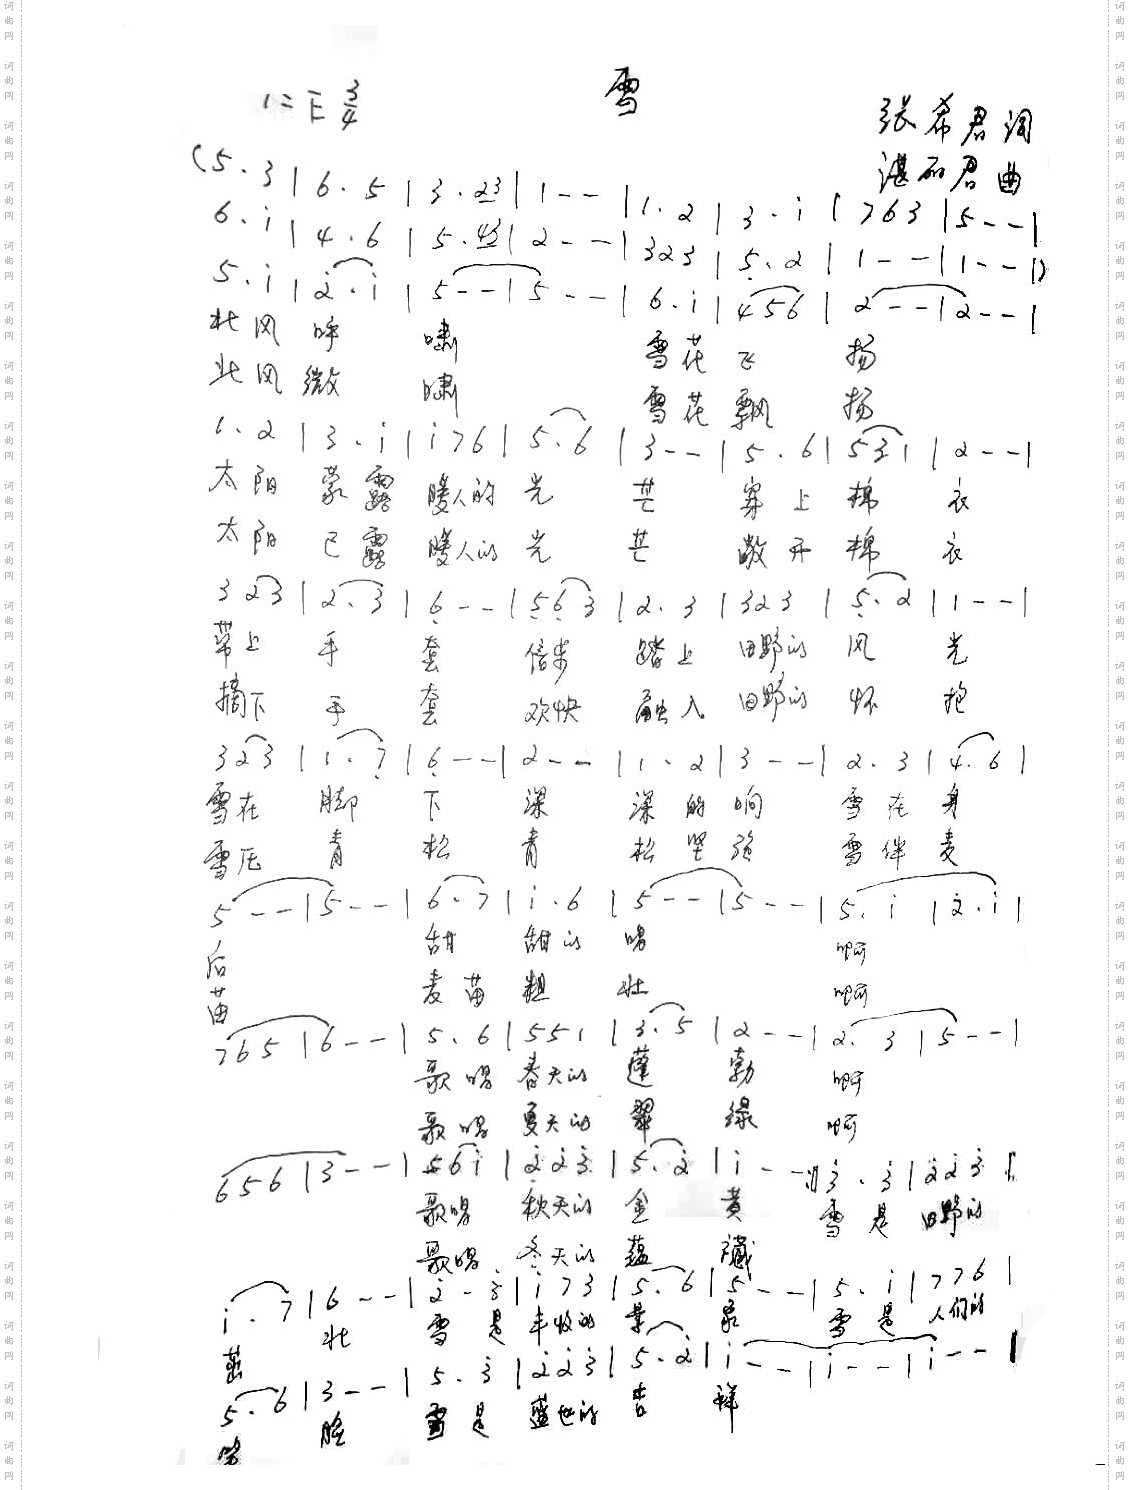 雪
1=E 3/4
张希君词
湛丽君曲
(5.3|6.5|3.23|1--|1.2|3.i|763|5--|
6.i|4.6|5.43|2--|323|5.2|1--|1--|)
5.i|2.i|5--|5--|6.i|456|2--|2--|
北风呼啸 雪花飞扬
北风微啸 雪花飘扬
1.2|3.i|i76|5.6|3--|5.6|531|2--|
太阳蒙露暖人的光芒 穿上棉衣
太阳已露暖人的光芒 敞开棉衣
323|2.3|6--|563|2.3|323|5.2|1--|
带上手套 信步踏上田野的风光
摘下手套 欢快融入田野的怀抱
323|1.7|6--|2--|1.2|3--|2.3|4.6|
雪在脚下深深的响 雪在身
雪压青松青松坚强 雪伴麦
5--|5--|6.7|i.6|5--|5--|5.i|2.i|
后 甜甜的唱 啊
苗 麦苗粗壮 啊
765|6--|5.6|551|3.5|2--|2.3|5--|
歌唱春天的蓬勃 啊
歌唱夏天的翠绿 啊
656|3--|56i|223|5.2|i--:||3.3|223|
歌唱秋天的金黄 雪是田野的
歌唱冬天的蕴藏
i.7|6--|2.3|i73|5.6|5--|5.i|776|
茁壮 雪是丰收的景象 雪是人们的
5.6|3--|5.3|223|5.2|i--|i--|i--|
笑脸 雪是盛世的吉祥
词曲网